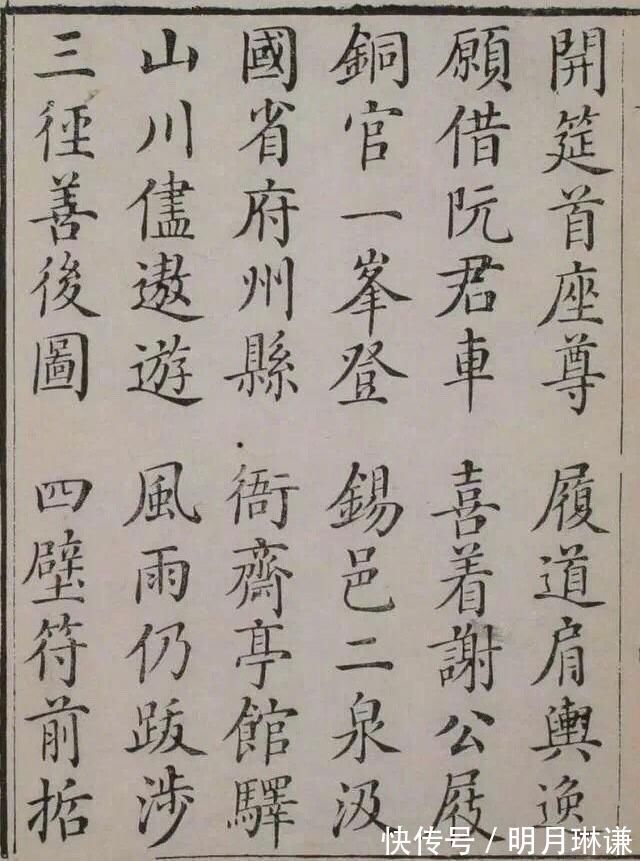 開筵首座尊 履道肩輿逸
願借阮君車 喜着謝公屐
銅官一峯登 錫邑二泉汲
國省府州縣 衙齋亭館驛
山川儘遨遊 風雨仍跋涉
三徑善後圖 四壁符前哲
快传号 / 明月琳谦